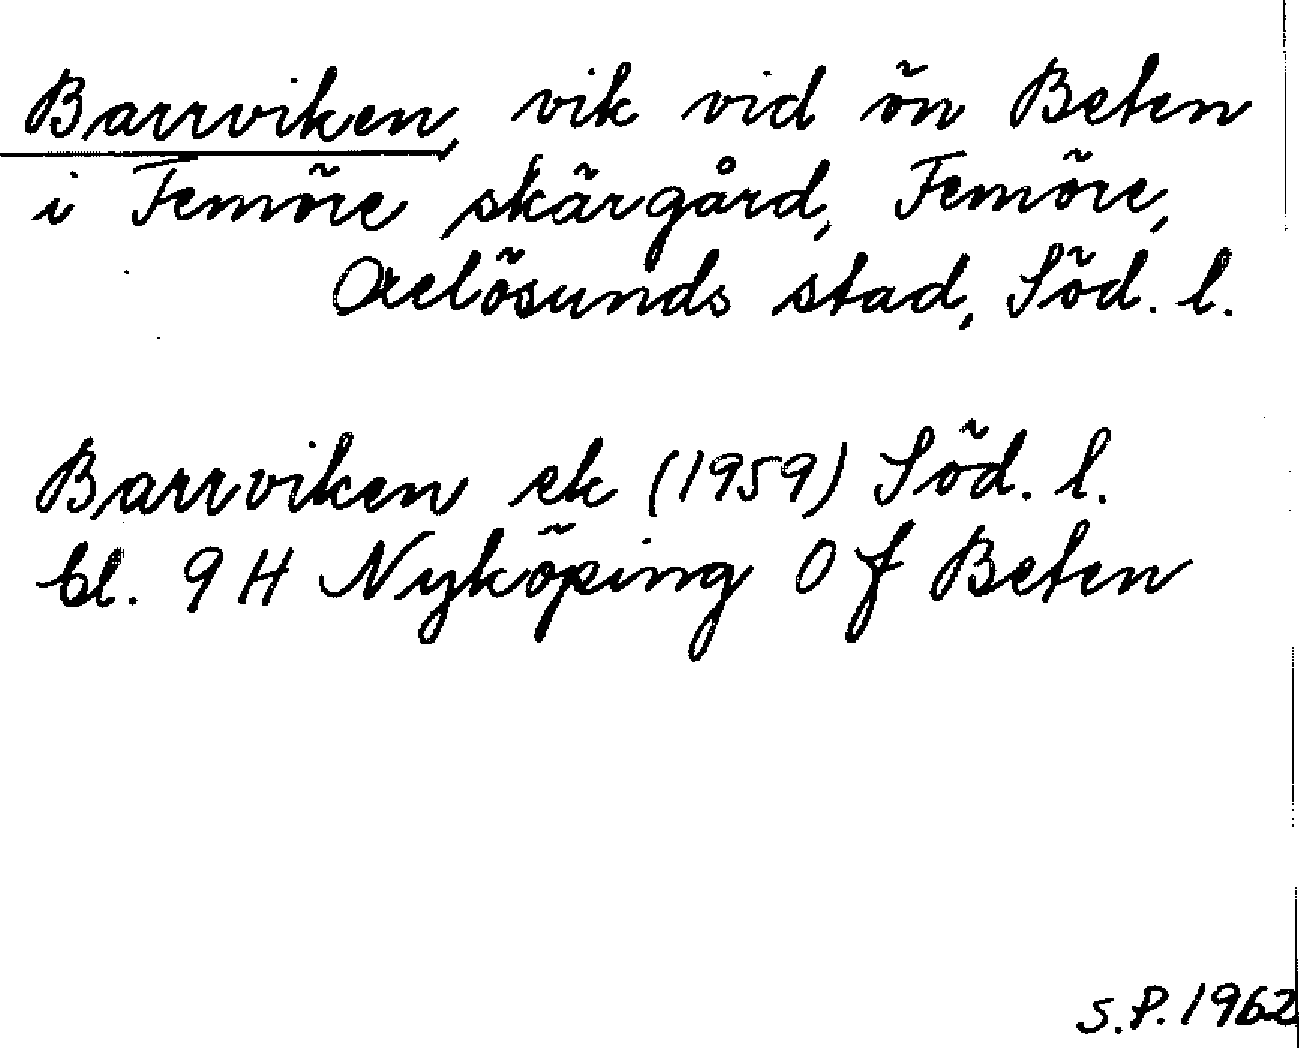 Barrviken, vik vid ön Beten
i Femöre skärgård, Femöre,
Oxelösunds stad, Söd. l.
Barrviken ek (1959) Söd. l.
bl. 9 H Nyköping 0 f Beten
S.P. 1962